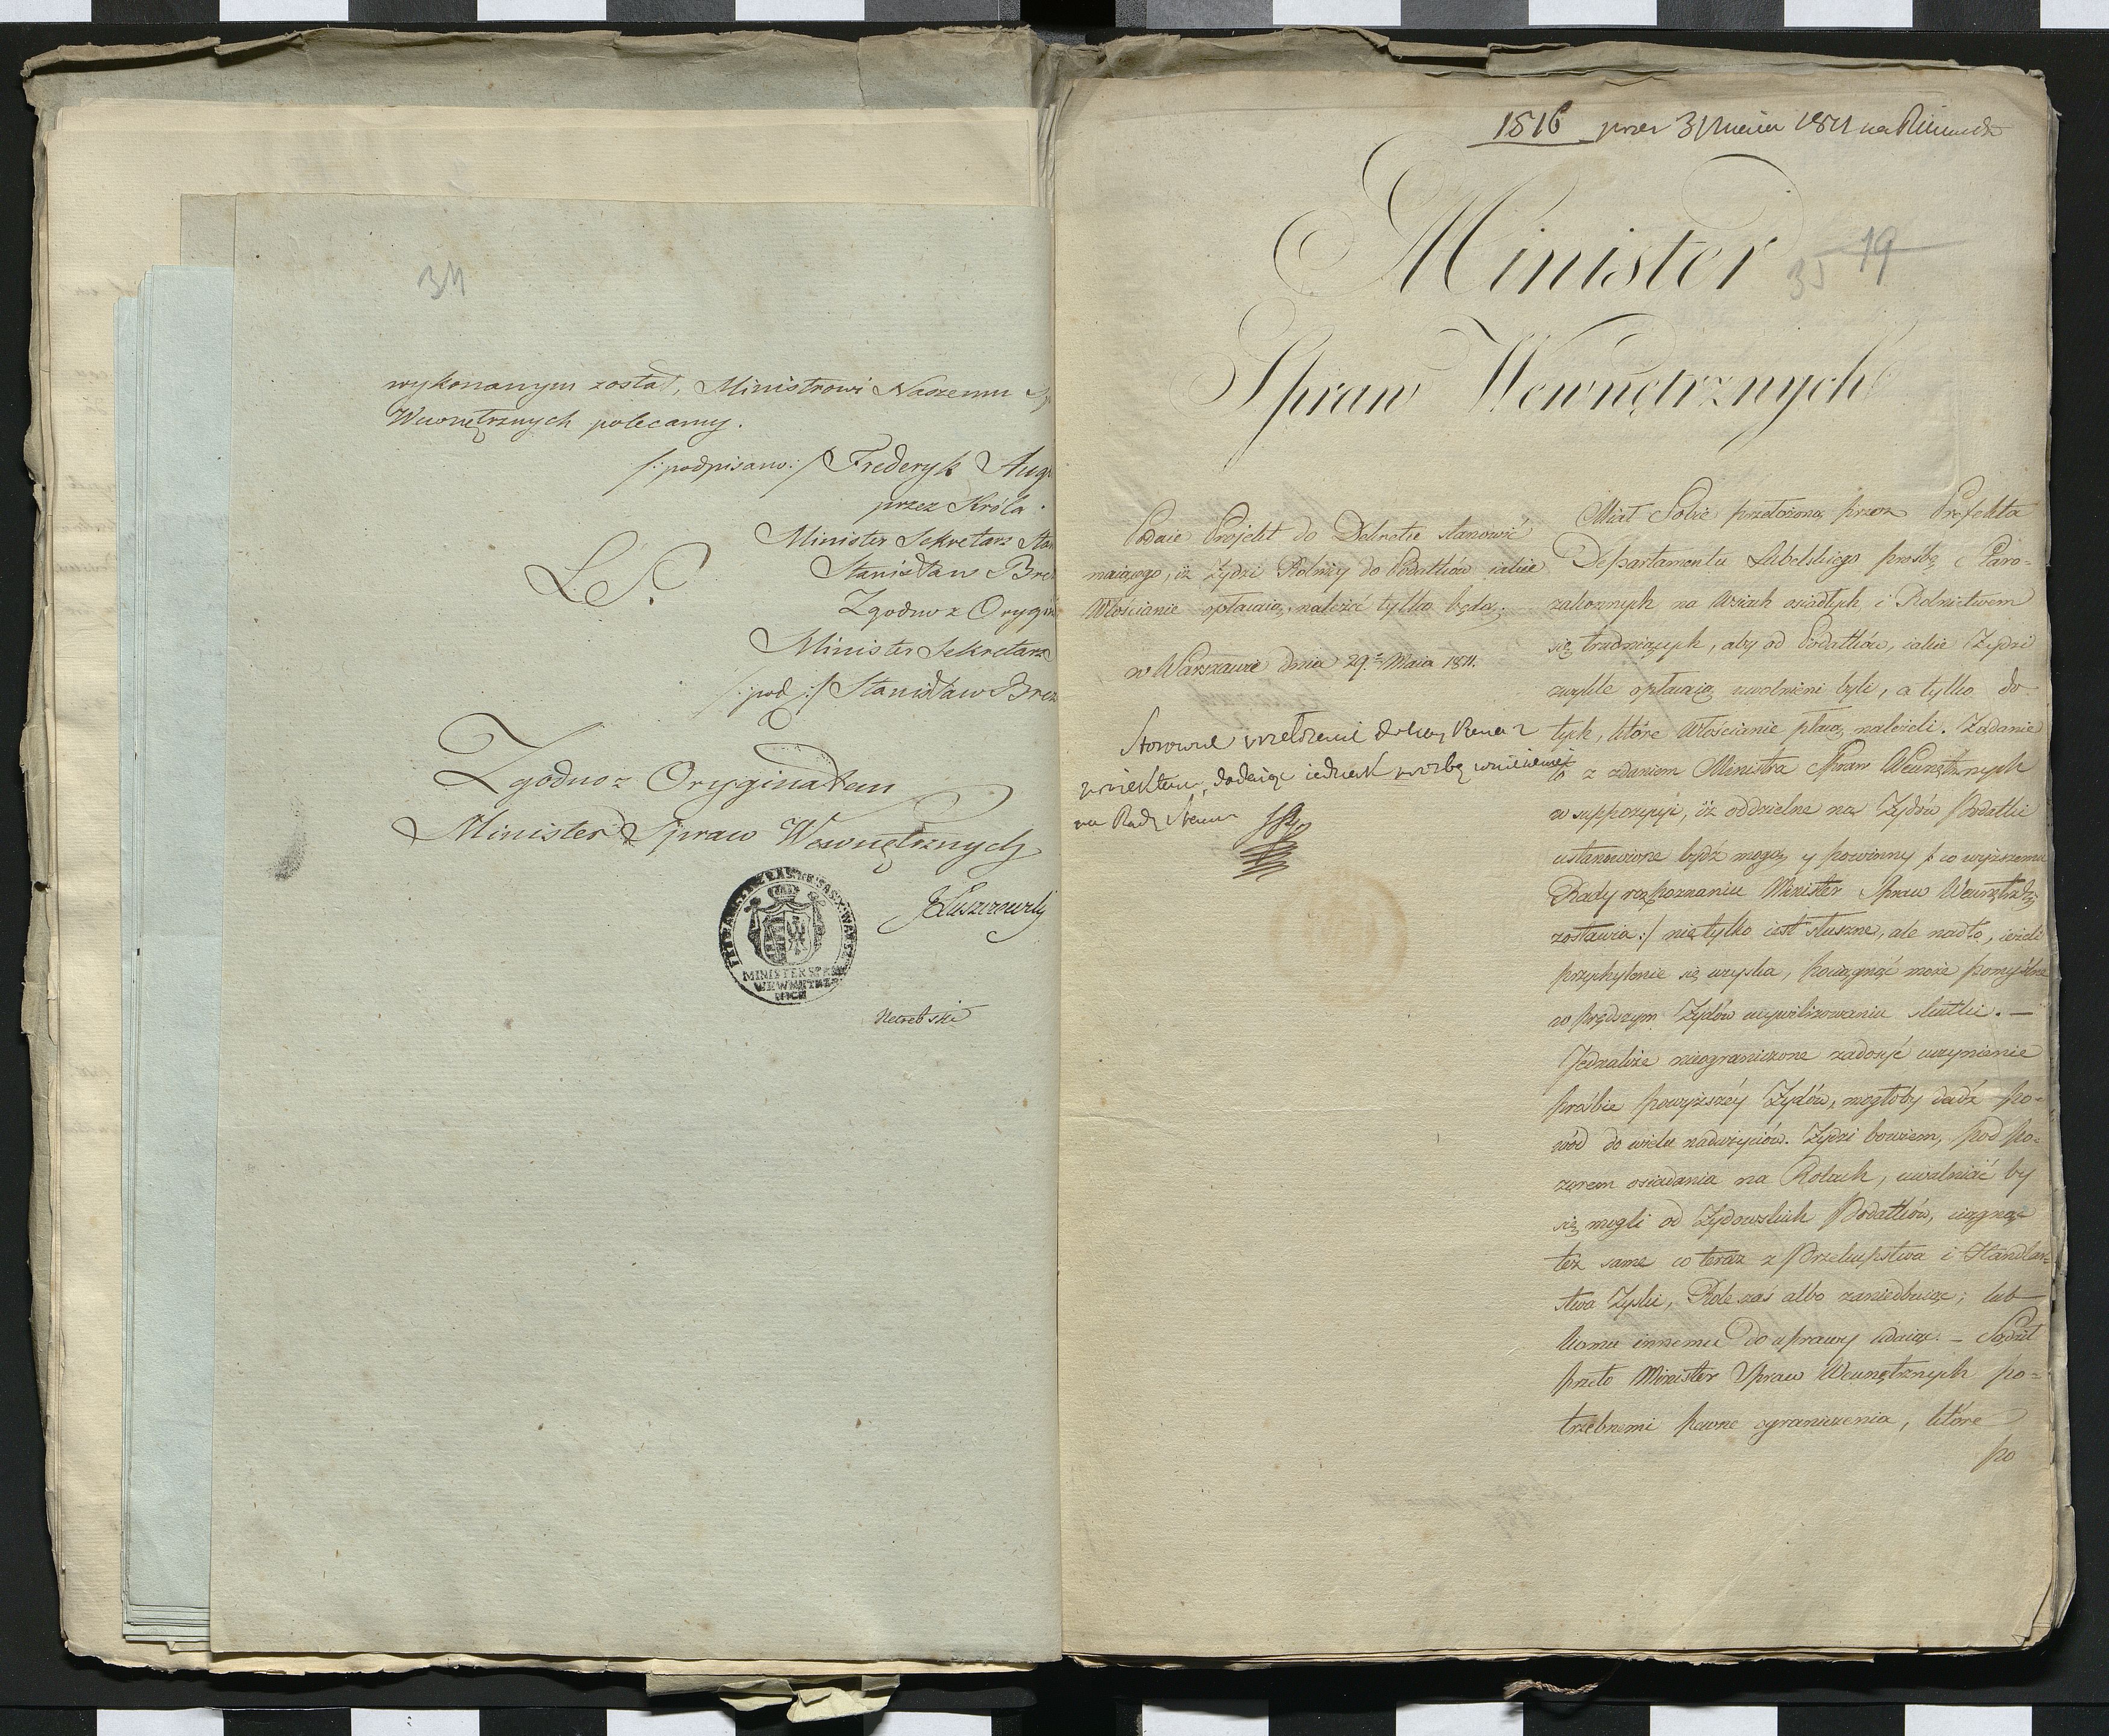 34
wykonanym został, Ministrowi Naszemu Sp
Wewnętrznych polecamy.
/: podpisano :/ Frederyk Aug
przez Króla
Minister Sekretarz Sta
Stanisław Bre
L. S.
Zgodno z Orygin
Minister Sekretarz
/: pod :/ Stanisław Brez
Zgodno z Oryginałem
Minister Spraw Wewnętrznych
JŁuszczewski
MINISTER SPRAW
WEWNĘTRZ
NYCH
1816 przez 31 Maia 1811
Minister
35 19
Spraw Wewnętrznych
Podaie Projekt do Dekretu stanowić
maiącego, iż Żydzi Rolnicy do Podatków iakie
Włościanie opłacaią, należeć tylko będą.
w Warszawie dnia 29. Maia 1811.
Stosowne
projektem, dodaiąc iednak prozbę wniesienie
na Radę Stanu
Miał Sobie przełożoną przez Prefekta
Departamentu Lubelskiego prosbę Staro-
zakonnych na Wsiach osiadłych i Rolnictwem
się trudniących, aby od Podatków, iakie Żydzi
zwykle opłacaią uwolnieni byli, a tylko do
tych, które Włościanie płacą należeli. Żądanie
to z zdaniem Ministra Spraw Wewnętrznych
w suppozycyi, iż oddzielne na Żydów Podatki
ustanowione bydź mogą y powinny /: co wyższemu
Rady rozpoznaniu Minister Spraw Wewnętrzn
zostawia :/ nie tylko iest słuszne, ale nadto, ieżeli
przychylenie się uzyska, pociągnąć może pomyślne
w prędszym Żydów ucywilizowaniu skutki. —
Jednakże nieograniczone zadosyć uczynienie
prośbie powyższéy Żydów, mogłoby dadź po-
wód do wielu nadużyciów. Żydzi bowiem, pod po-
zorem osiadania na Rolach, uwalniać by
się mogli od Żydowskich Podatków, ciągnąc
też same co teraz z Przekupstwa i Handlar-
stwa Zyski, Role zaś albo zaniedbuiąc; lub
komu innemu do uprawy zdaiąc. — Sądził
przeto Minister Spraw Wewnętrznych po-
trzebnemi pewne ograniczenia, które
po